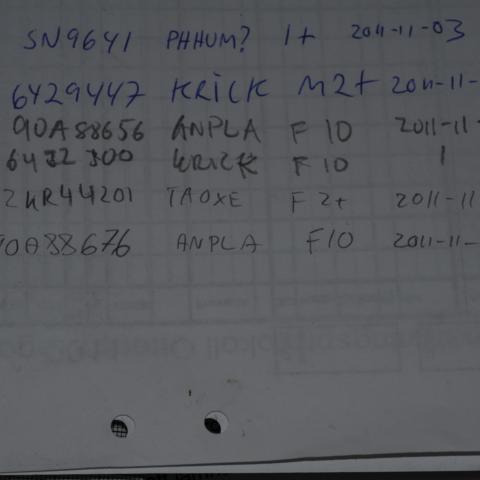 SN9641 PHHUM? 1+ 2011-11-03
6429447 KRICK M2+ 2011-11-
90A88656 ANPLA F 10 2011-11-
KRICK F 10 1
2KR44201 TAOXE F 2+ 2011-11
90A88676 ANPLA F10 2011-11-